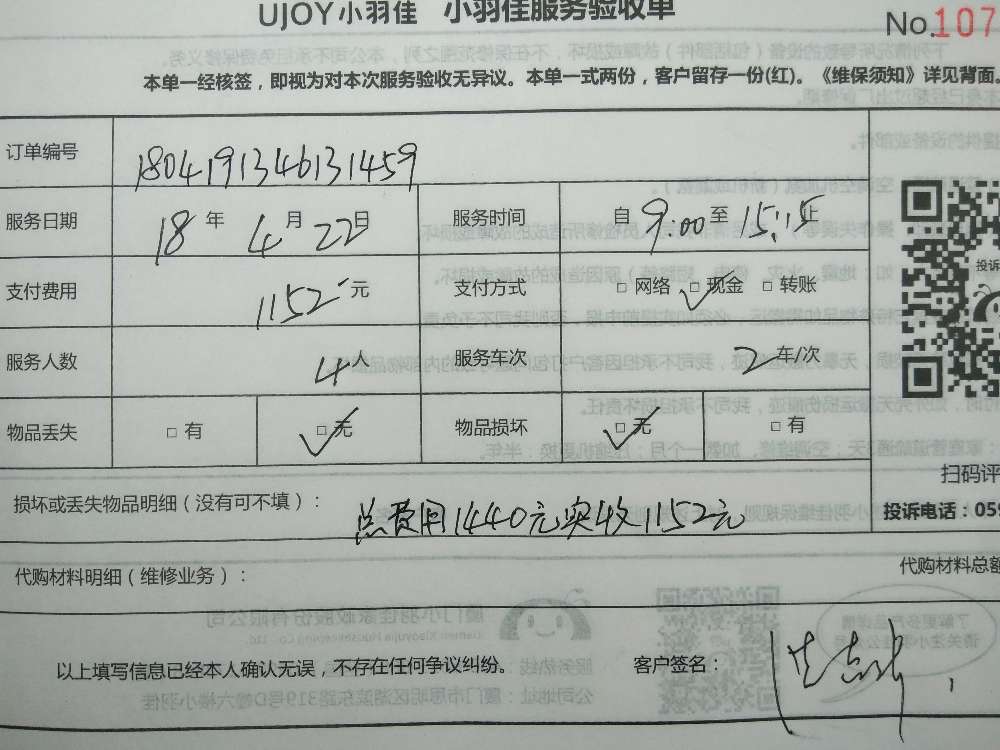 UJOY小羽佳 小羽佳服务验收单
No.107
本单一经核签，即视为对本次服务验收无异议。本单一式两份，客户留存一份(红)。《维保须知》详见背面。
订单编号 1804191346131459
服务日期 18年4月22日 服务时间 自9:00至15:15止
支付费用 1152元 支付方式 □网络 ☑现金 □转账
服务人数 4人 服务车次 2车/次
物品丢失 □有 ☑无 物品损坏 ☑无 □有
投诉
扫码评
损坏或丢失物品明细（没有可不填）： 总费用1440元实收1152元
投诉电话：059
代购材料明细（维修业务）： 代购材料总额
以上填写信息已经本人确认无误，不存在任何争议纠纷。 客户签名：